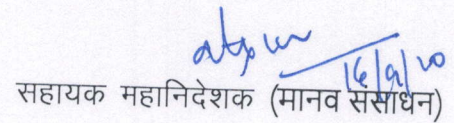 16/9/10
सहायक महानिदेशक (मानव संसाधन)